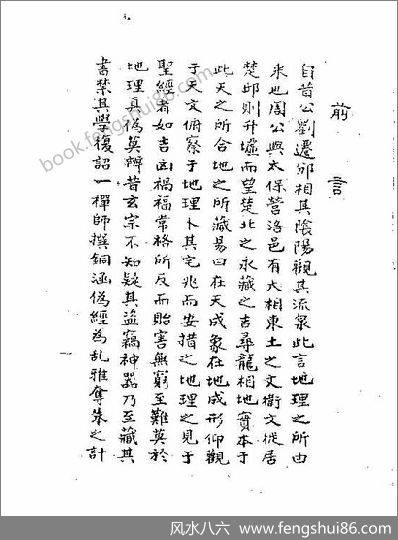 前言
自昔公劉遷邠相其陰陽觀其流泉此言地理之所由
來也周公與太保營洛邑有大相東土之文衛文徙居
楚邱則升墟而望楚北之永藏之吉尋龍相地實本于
此天之所合地之所藏易曰在天成象在地成形仰觀
于天文俯察于地理卜其宅兆而安措之地理之見于
聖經者如吉凶禍福常格所反而貽害無窮至難莫於
地理真偽莫辨昔玄宗不知疑其盜竊神器乃至藏其
書禁其學復詔一禪師撰銅函偽經為乱雅奪朱之計
一
book.fengshui86.com
风水八六 - www.fengshui86.com